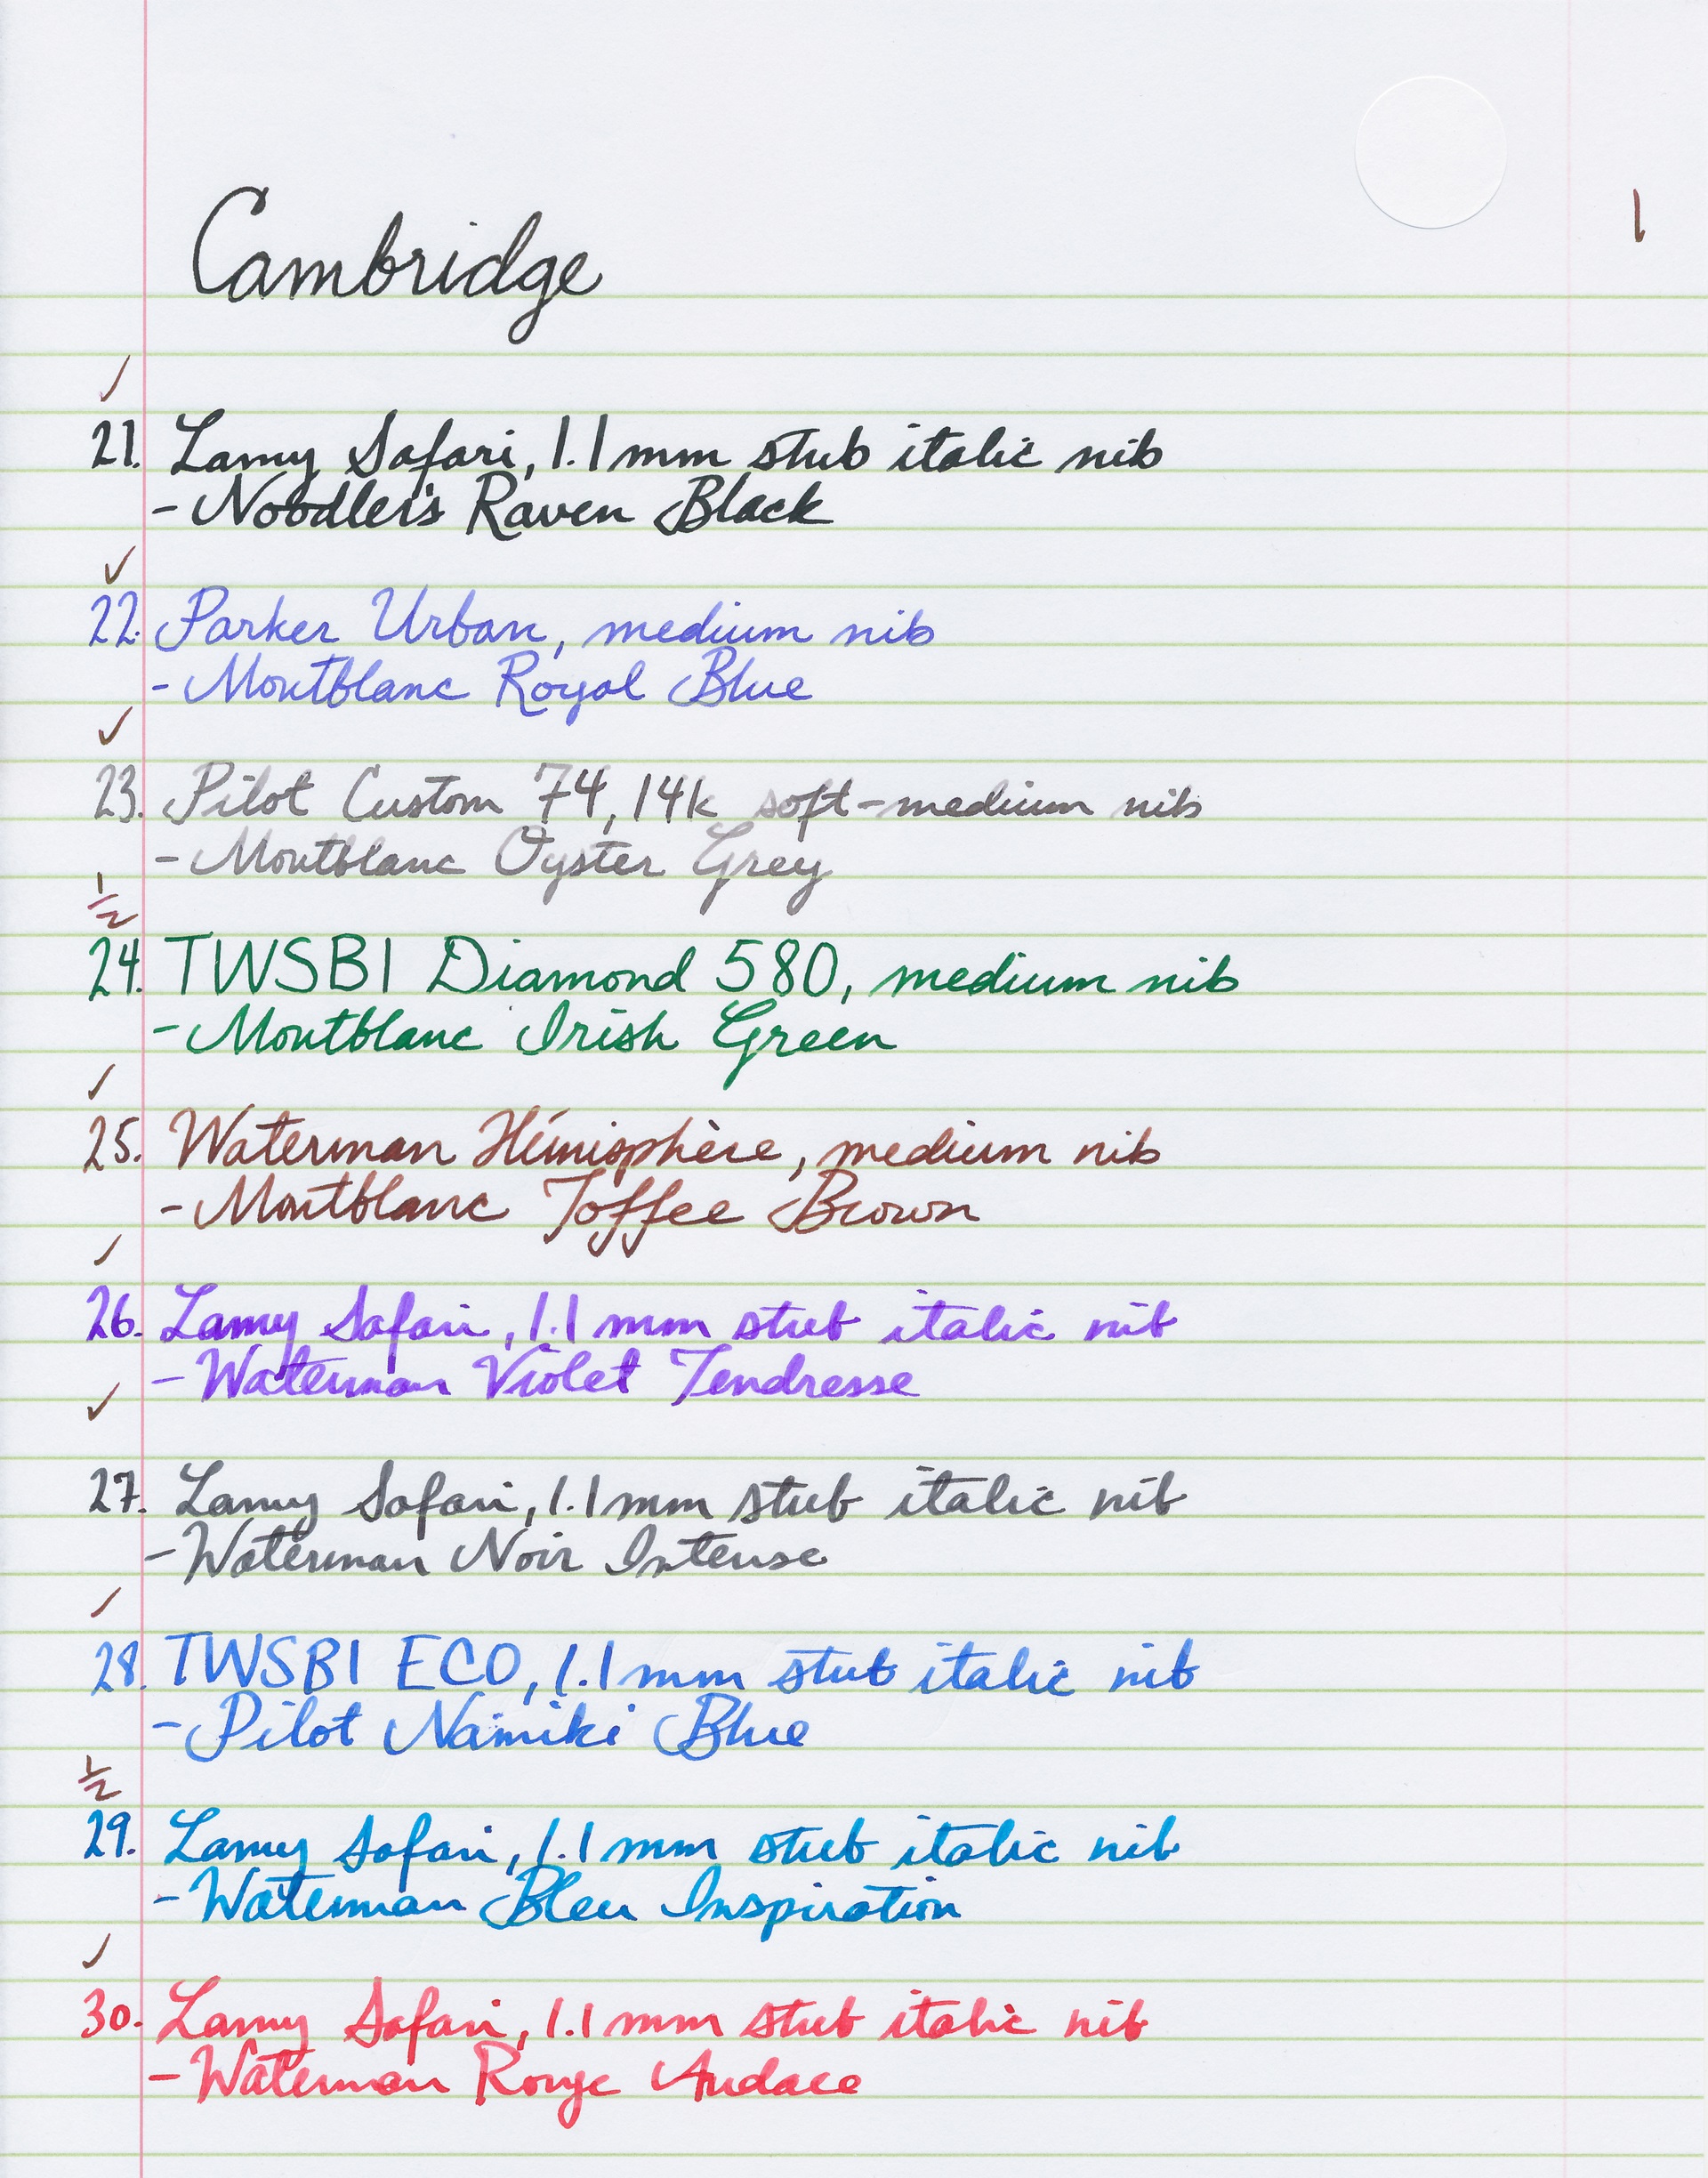 1
Cambridge
✓
21. Lamy Safari, 1.1mm stub italic nib
- Noodler's Raven Black
✓
22. Parker Urban, medium nib
- Montblanc Royal Blue
✓
23. Pilot Custom 74, 14k soft-medium nib
- Montblanc Oyster Grey
1/2
24. TWSBI Diamond 580, medium nib
- Montblanc Irish Green
✓
25. Waterman Hémisphère, medium nib
- Montblanc Toffee Brown
✓
26. Lamy Safari, 1.1mm stub italic nib
- Waterman Violet Tendresse
✓
27. Lamy Safari, 1.1mm stub italic nib
- Waterman Noir Intense
✓
28. TWSBI ECO, 1.1mm stub italic nib
- Pilot Namiki Blue
1/2
29. Lamy Safari, 1.1mm stub italic nib
- Waterman Bleu Inspiration
✓
30. Lamy Safari, 1.1mm stub italic nib
- Waterman Rouge Audace